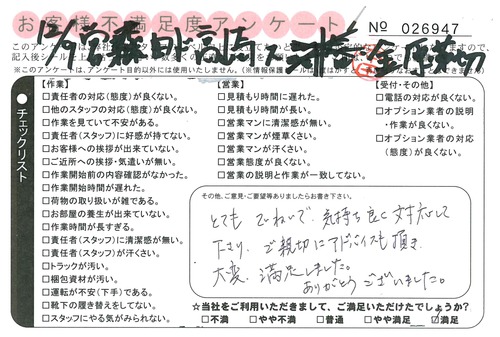 お客様不満足度アンケート
№ 026947
チェックリスト
【作業】
□責任者の対応(態度)が良くない。
□他のスタッフの対応(態度)が良くない。
□作業を見ていて不安がある。
□責任者(スタッフ)に好感が持てない。
□お客様への挨拶が出来ていない。
□ご近所への挨拶・気遣いが無い。
□作業開始前の内容確認がなかった。
□作業開始時間が遅れた。
□荷物の取り扱いが雑である。
□お部屋の養生が出来ていない。
□作業時間が長すぎる。
□責任者(スタッフ)に清潔感が無い。
□責任者(スタッフ)が汗くさい。
□トラックが汚い。
□梱包資材が汚い。
□運転が不安(下手)である。
□靴下の履き替えをしてない。
□スタッフにやる気がみられない。
【営業】
□見積もり時間に遅れた。
□見積もり時間が長い。
□営業マンに清潔感が無い。
□営業マンが煙草くさい。
□営業マンが汗くさい。
□営業態度が良くない。
□営業の説明と作業が一致してない。
【受付・その他】
□電話の対応が良くない。
□オプション業者の説明
・作業が良くない。
□オプション業者の対応
(態度)が良くない。
その他、ご意見・ご要望等ありましたらお書き下さい。
とても ていねいで、気持ち良く対応して
下さり、ご親切にアドバイスも頂き
大変、満足しました。
ありがとうございました。
☆当社をご利用いただきまして、ご満足いただけたでしょうか?
□不満 □やや不満 □普通 □やや満足 ☑満足